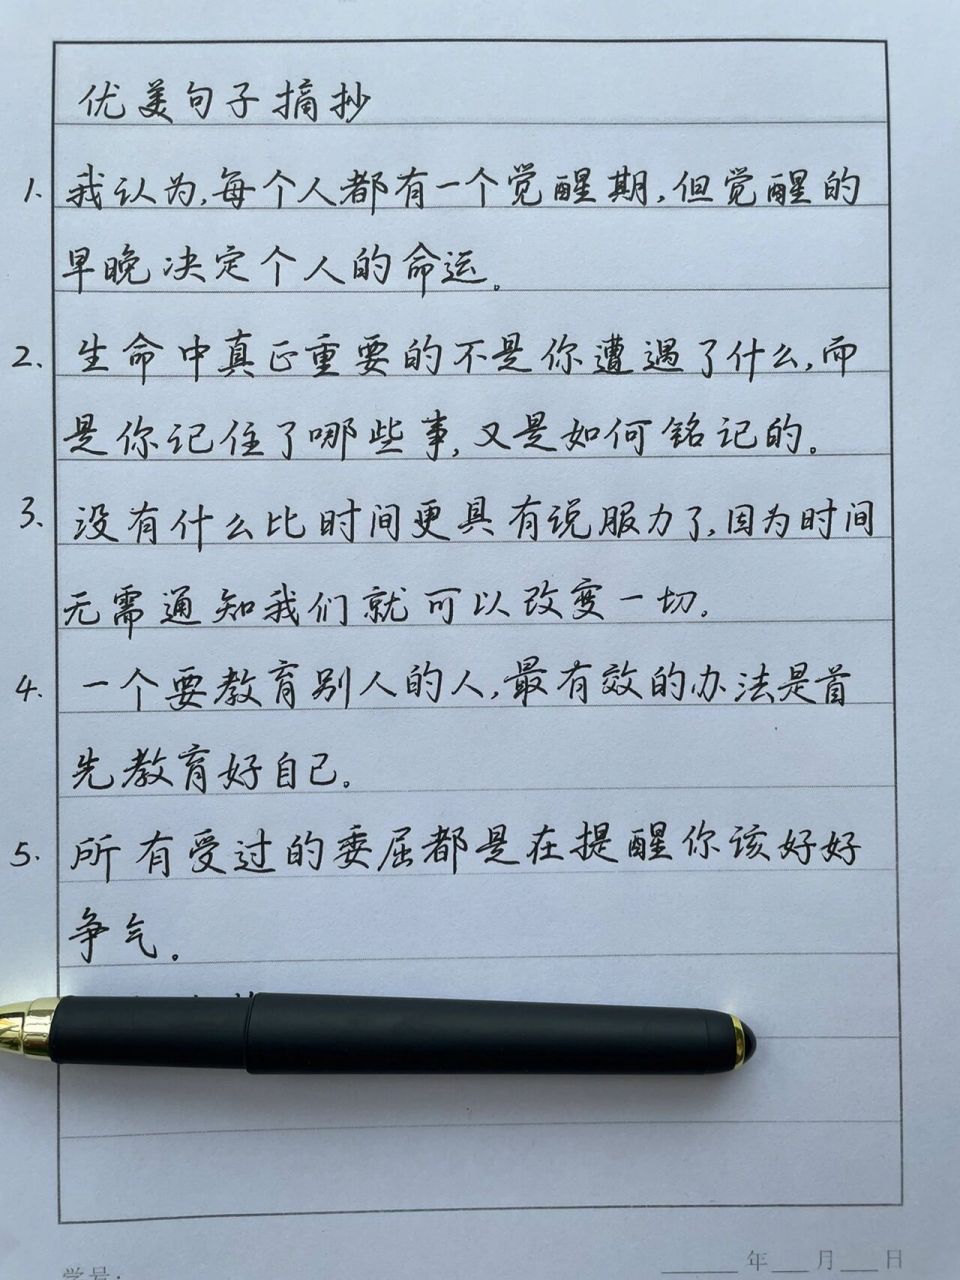 优美句子摘抄
1. 我认为,每个人都有一个觉醒期,但觉醒的
早晚决定个人的命运。
2、生命中真正重要的不是你遭遇了什么,而
是你记住了哪些事,又是如何铭记的。
3、没有什么比时间更具有说服力了,因为时间
无需通知我们就可以改变一切。
4. 一个要教育别人的人,最有效的办法是首
先教育好自己。
5. 所有受过的委屈都是在提醒你该好好
争气。
学号: ____年__月__日